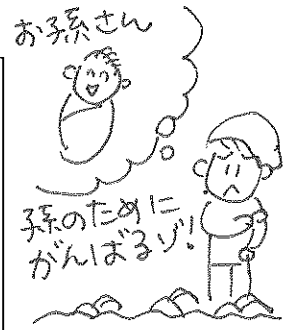 お孫さん
孫のために
がんばるゾ!